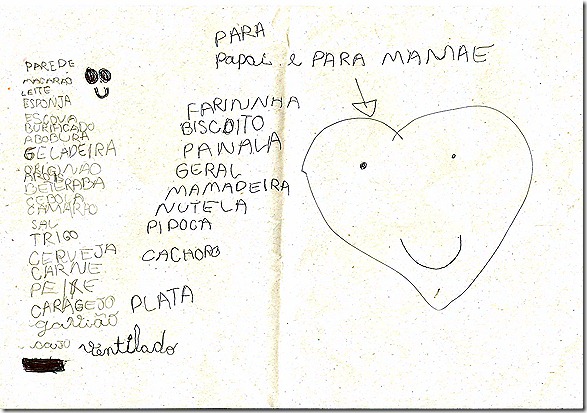 PARA
Papai e PARA MAMAE
PAREDE
MACARAO
LEITE
ESPONJA
ESCOVA
BURIFICADO
ABOBURA
GELADEIRA
ORIGINAO
ARROIS
BETERABA
CEBOLA
CAMARAO
SAL
TRIGO
CERVEJA
CARNE
PEIXE
CARAGEJO
gavião
FARININHA
BISCOITO
PANALA
GERAL
MAMADEIRA
NUTELA
PIPOCA
CACHORO
PLATA
Ventilado